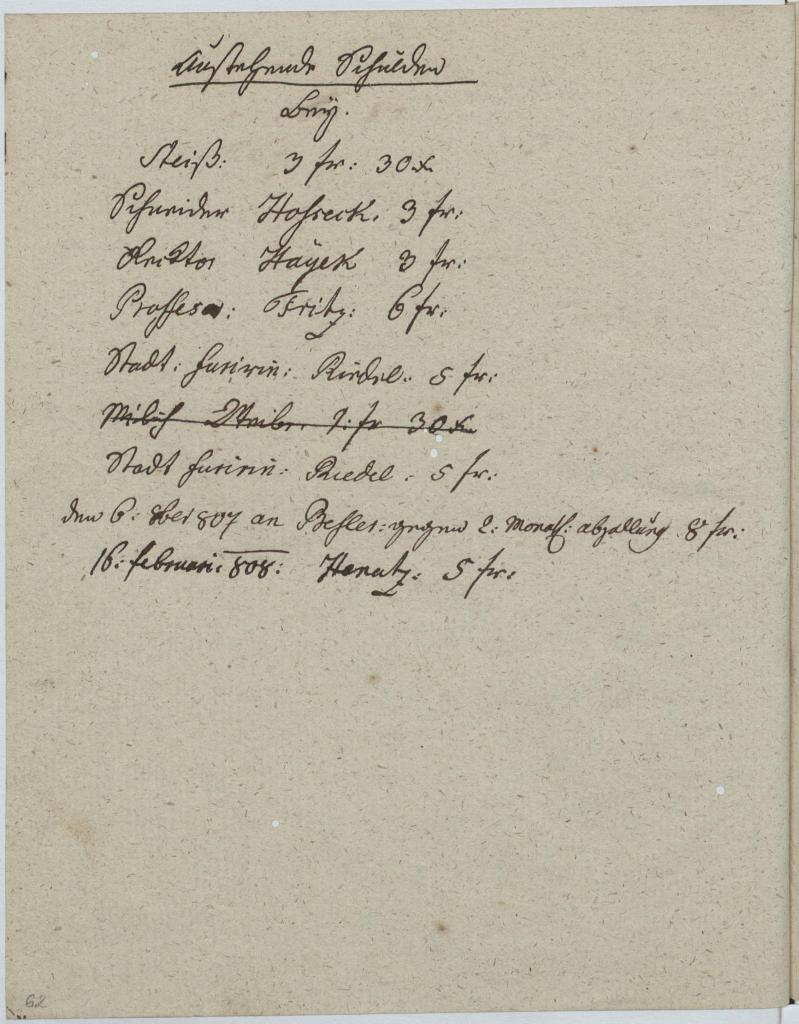 Ausstehende Schulden
bey.
Steiß: 3 fr: 30 x
Schneider Hohseck. 3 fr:
Rector Hayek 3 fr:
Proffesor: Fritz: 6 fr:
Stadt: furirin: Riedel. 5 fr:
Milich Weiber 1: fr 30 x
Stadt furirin: Riedel. 5 fr:
den 6: 807 an gegen 2: Monatl: abzallung 8 fr:
16: februari: 808: Henatz: 5 fr:
62